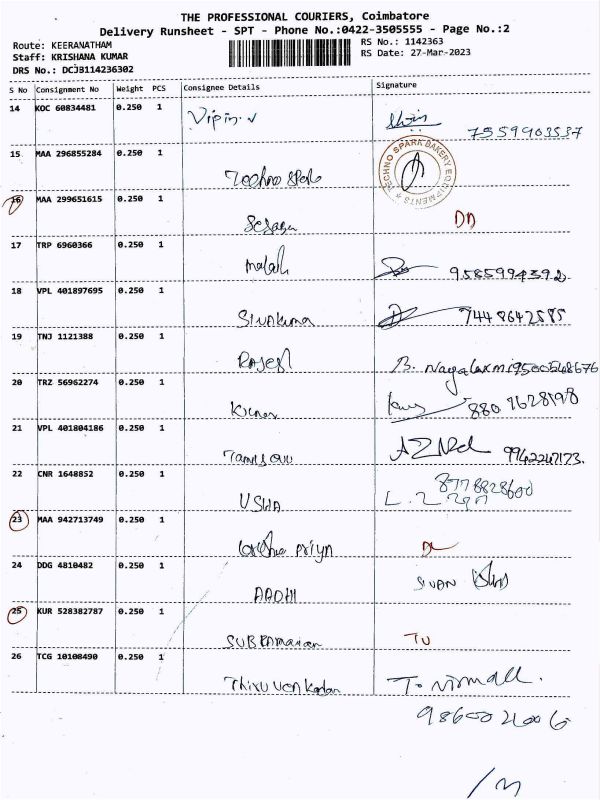 THE PROFESSIONAL COURIERS, Coimbatore
Delivery Runsheet - SPT - Phone No.:0422-3505555 - Page No.:2
Route: KEERANATHAM
RS No.: 1142363
Staff: KRISHANA KUMAR
RS Date: 27-Mar-2023
DRS No.: DCJB114236302
S No Consignment No Weight PCS Consignee Details Signature
14 KOC 60834481 0.250 1 Vipin. v 7559903537
15 MAA 296855284 0.250 1 TECHNO SPARK BAKERY EQUIPMENTS
16 MAA 299651615 0.250 1 DD
17 TRP 6960366 0.250 1 9585994392
18 VPL 401897695 0.250 1 Sivakuma 7448642585
19 TNJ 1121388 0.250 1 Rajesh B. Nagalaxmi 9500548676
20 TRZ 56962274 0.250 1 Kumar
21 VPL 401804186 0.250 1
22 CNR 1648852 0.250 1 USHA 8778828600
23 MAA 942713749 0.250 1 Priya
24 DDG 4810482 0.250 1 AADHI SIVAN
25 KUR 528382787 0.250 1 SUBRAmanian
26 TCG 10108490 0.250 1 Thiruvenkadan T. Nirmall.